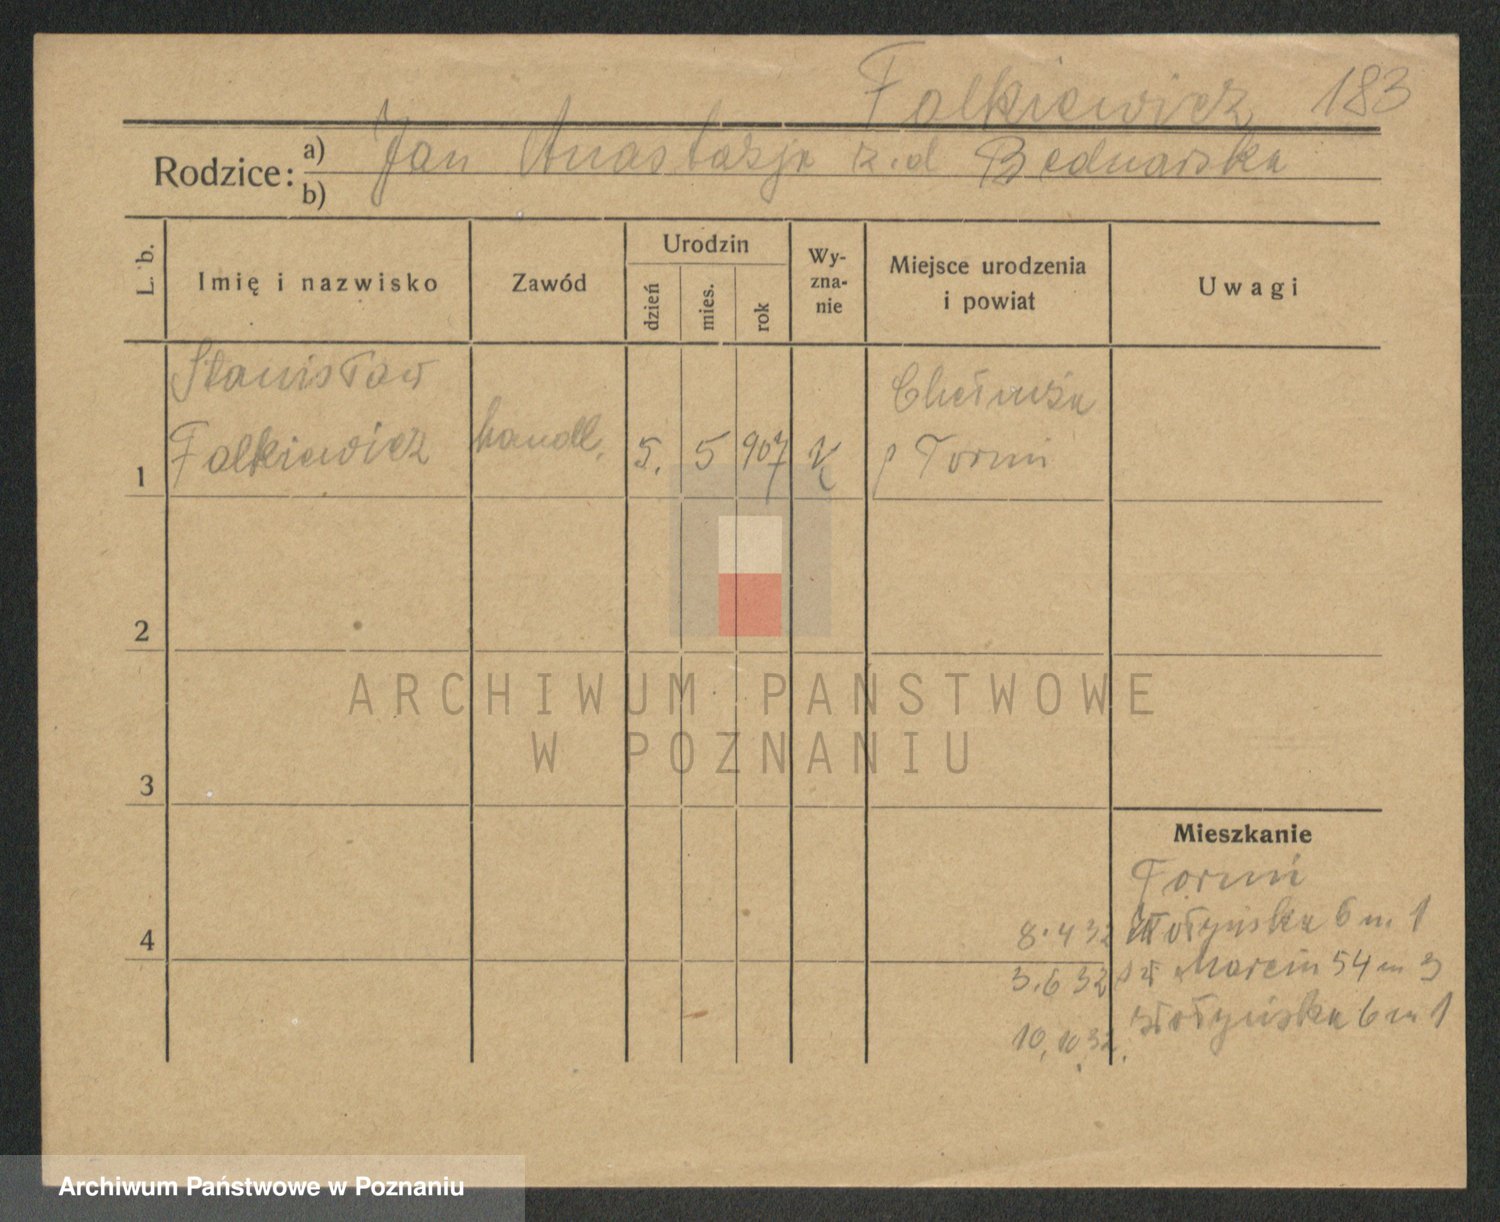 Falkiewicz 183
Rodzice: a) Jan Anastazja z.d Bednarska
b)
L. b. Imię i nazwisko Zawód Urodzin dzień mies. rok Wy-zna-nie Miejsce urodzenia i powiat Uwagi
Stanisław Chełmża
1 Falkiewicz handl. 5. 5 907 k p Toruń
2
3
Mieszkanie
Toruń
4 8.4 32 Wołyńska 6 m. 1
3.6 32 św Marcin 54 m 3
10.10.32. Wołyńska 6 m 1
ARCHIWUM PAŃSTWOWE
W POZNANIU
Archiwum Państwowe w Poznaniu